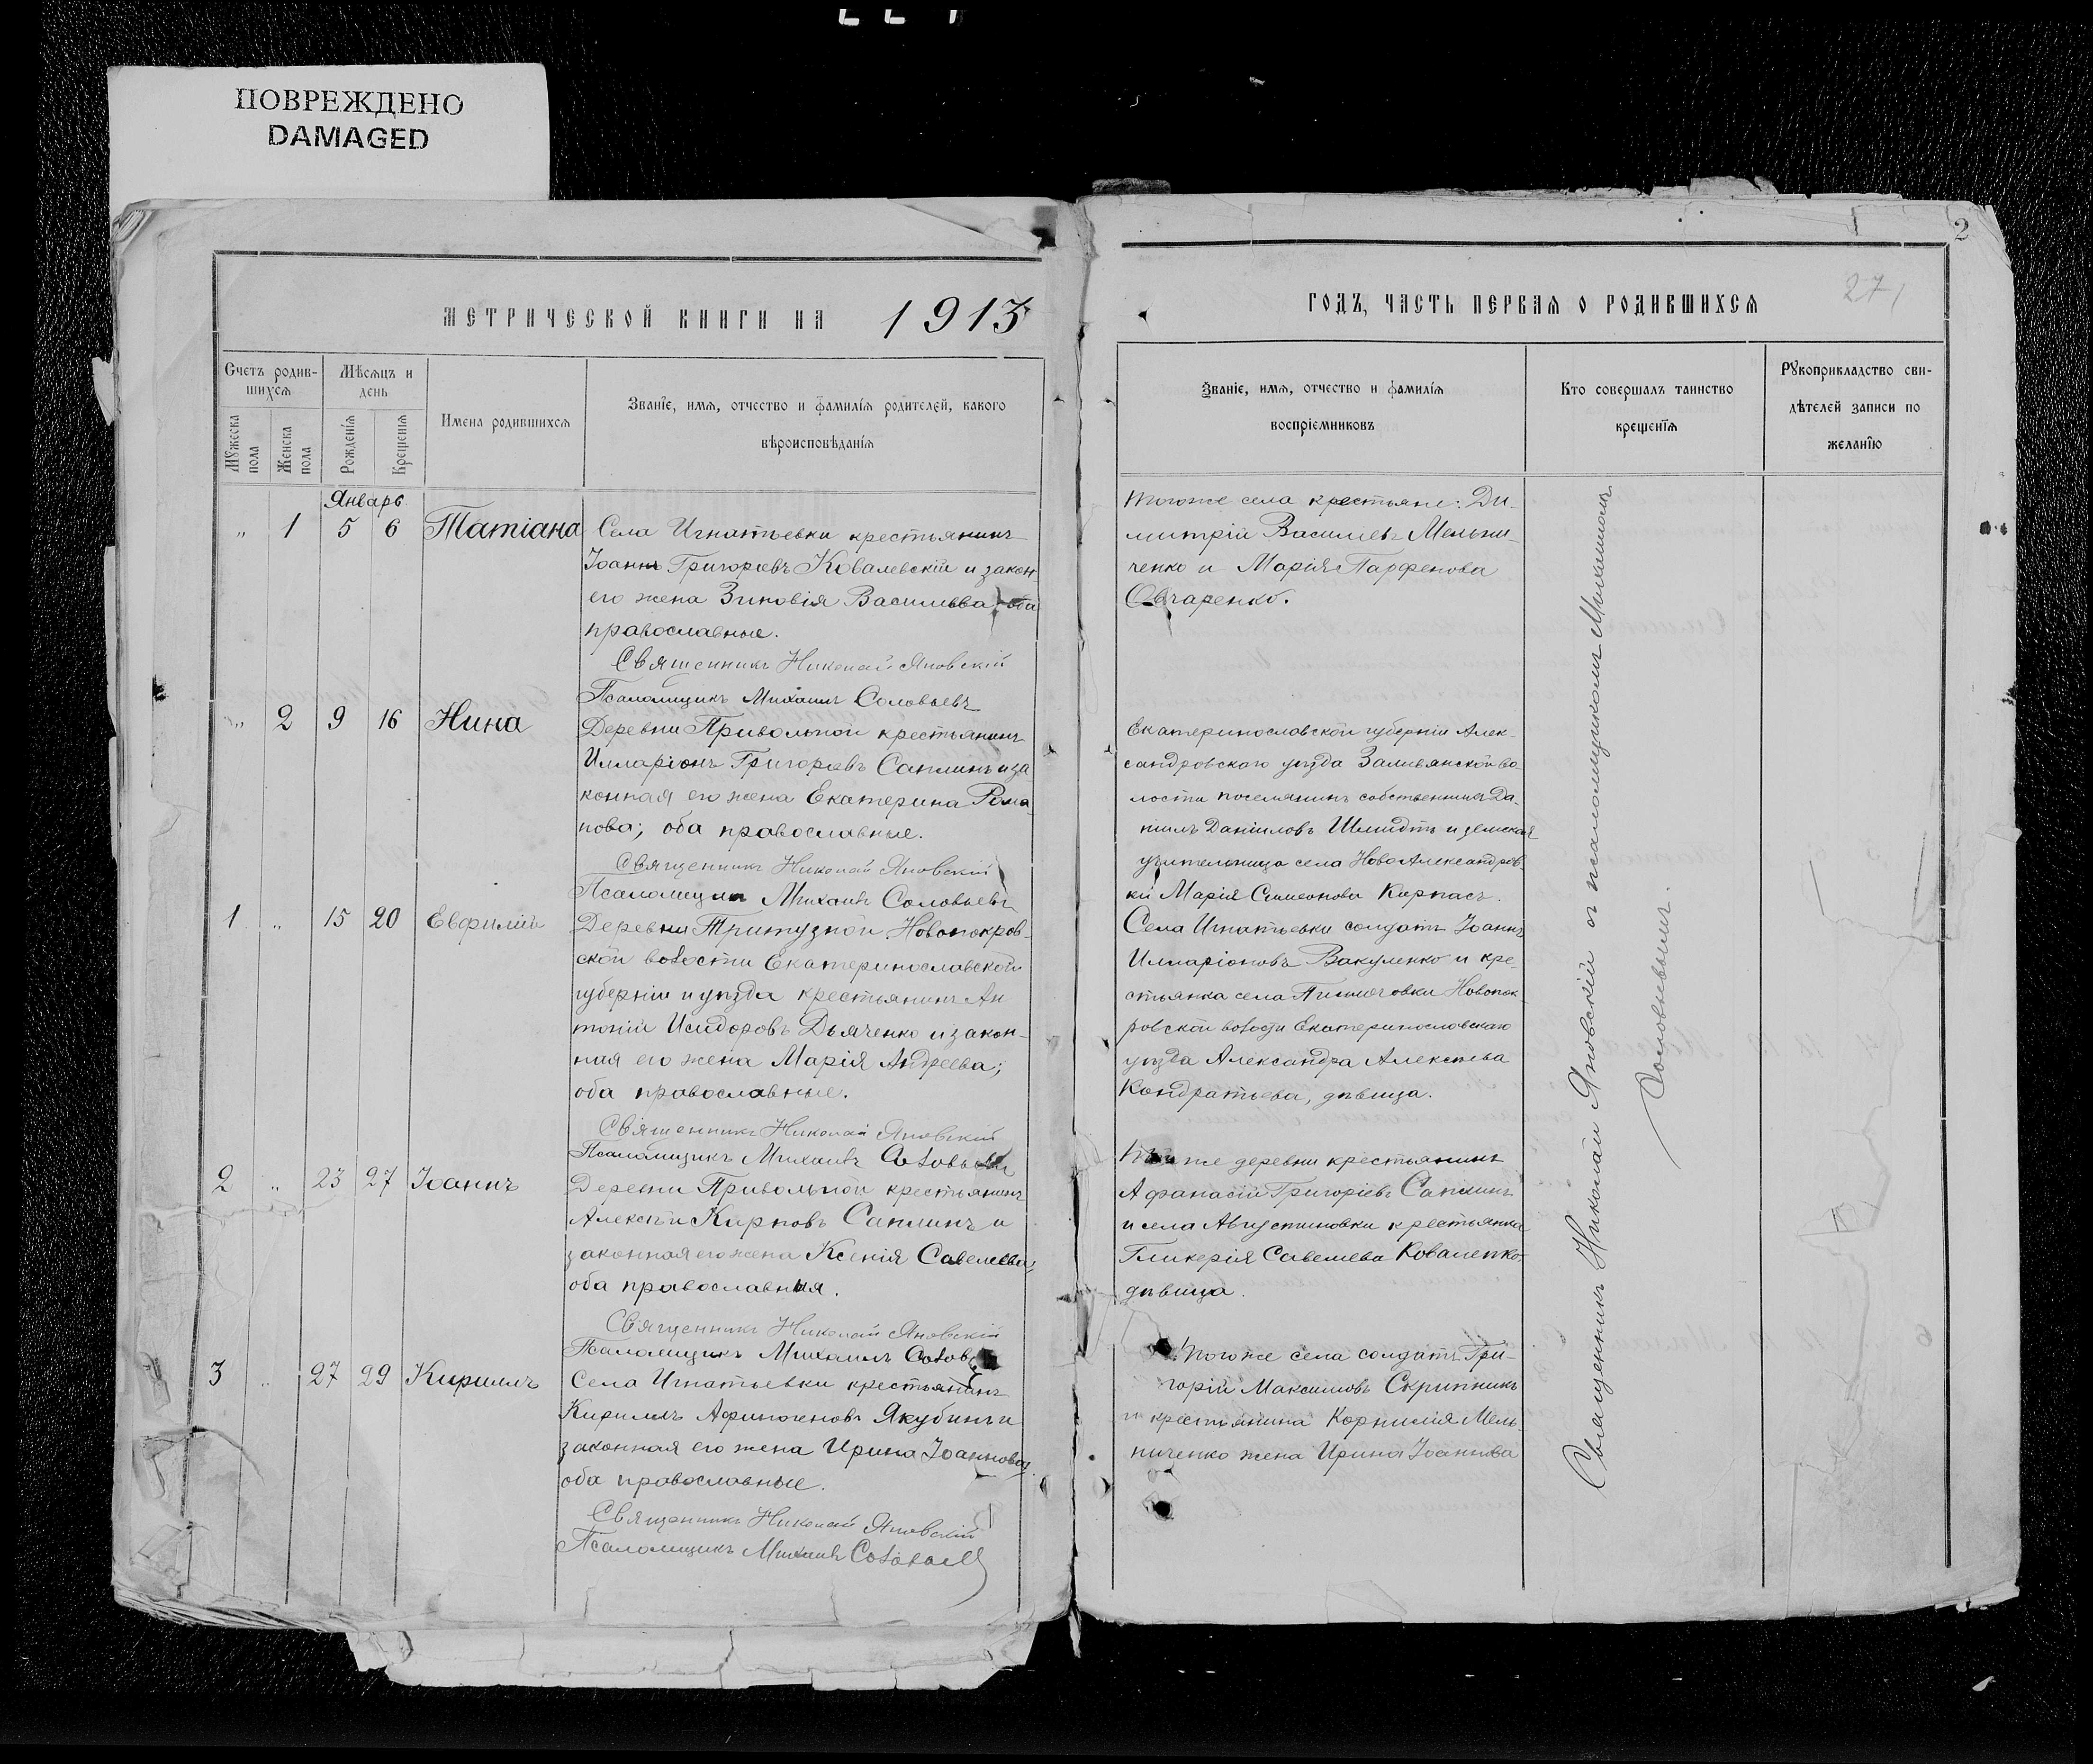 ПОВРЕЖДЕНО
DAMAGED
2
271
МЕТРИЧЕСКОЙ КНИГИ НА 1913
ГОДЪ, ЧАСТЬ ПЕРВАЯ О РОДИВШИХСЯ
Счетъ родив-
шихся
Мѣсяцъ и
день
Мужеска
пола
Женска
пола
Рожденія
Крещенія
Имена родившихся
Званіе, имя, отчество и фамилія родителей, какого
вѣроисповѣданія
Званіе, имя, отчество и фамилія
воспріемниковъ
Кто совершалъ таинство
крещенія
Рукоприкладство сви-
дѣтелей записи по
желанію
Январь
„ 1 5 6 Татіана
Села Игнатьевки крестьянинъ
Іоаннъ Григорьевъ Ковалевскій и закон.
его жена Зиновія Васильева, оба
православные.
Священникъ Николай Яновскій
Псаломщикъ Михаилъ Соловьевъ
Тогоже села крестьяне: Ди-
митрій Васильевъ Мельни-
ченко и Марія Парфенова
Овчаренко.
„ 2 9 16 Нина
Деревни Привольной крестьянинъ
Илларіонъ Григорьевъ Саплинъ и за
конная его жена Екатерина Рома
нова; оба православные.
Священникъ Николай Яновскій
Псаломщикъ Михаилъ Соловьевъ
Екатеринославской губерніи Алек-
сандровскаго уѣзда Заливянской во
лости поселянинъ собственникъ Да-
ніилъ Даніиловъ Шмидтъ и земская
учительница села НовоАлександров
ки Марія Симеонова Карпасъ.
1 „ 15 20 Евфимій
Деревни Тритузной Новопокров-
ской волости Екатеринославской
губерніи и уѣзда крестьянинъ Ан
тоній Исидоровъ Дьяченко и закон-
ная его жена Марія Андреева;
оба православные.
Священникъ Николай Яновскій
Псаломщикъ Михаилъ Соловьевъ
Села Игнатьевки солдатъ Іоаннъ
Илларіоновъ Вакуленко и кре-
стьянка села Новопок
ровской волости Екатеринославскаго
уѣзда Александра Алексѣева
Кондратьева, дѣвица.
2 „ 23 27 Іоаннъ
Деревни Привольной крестьянинъ
Алексѣй Карповъ Саплинъ и
законная его жена Ксенія Савельева;
оба православныя.
Священникъ Николай Яновскій
Псаломщикъ Михаилъ Соловьевъ
же деревни крестьянинъ
Афанасій Григоріевъ Саплинъ
и села Августиновки крестьянка
Гликерія Савельева Коваленко
дѣвица.
3 „ 27 29 Кириллъ
Села Игнатьевки крестьянинъ
Кириллъ Афиногеновъ Якубинъ и
законная его жена Ирина Іоаннова;
оба православные.
Священникъ Николай Яновскій
Псаломщикъ Михаилъ Соловьевъ
Тогоже села солдатъ Гри-
горій Максимовъ Скрипникъ
и крестьянина Корнилія Мель
ниченко жена Ирина Іоаннова
Священникъ Николай Яновскій съ псаломщикомъ Михаиломъ
Соловьевымъ.